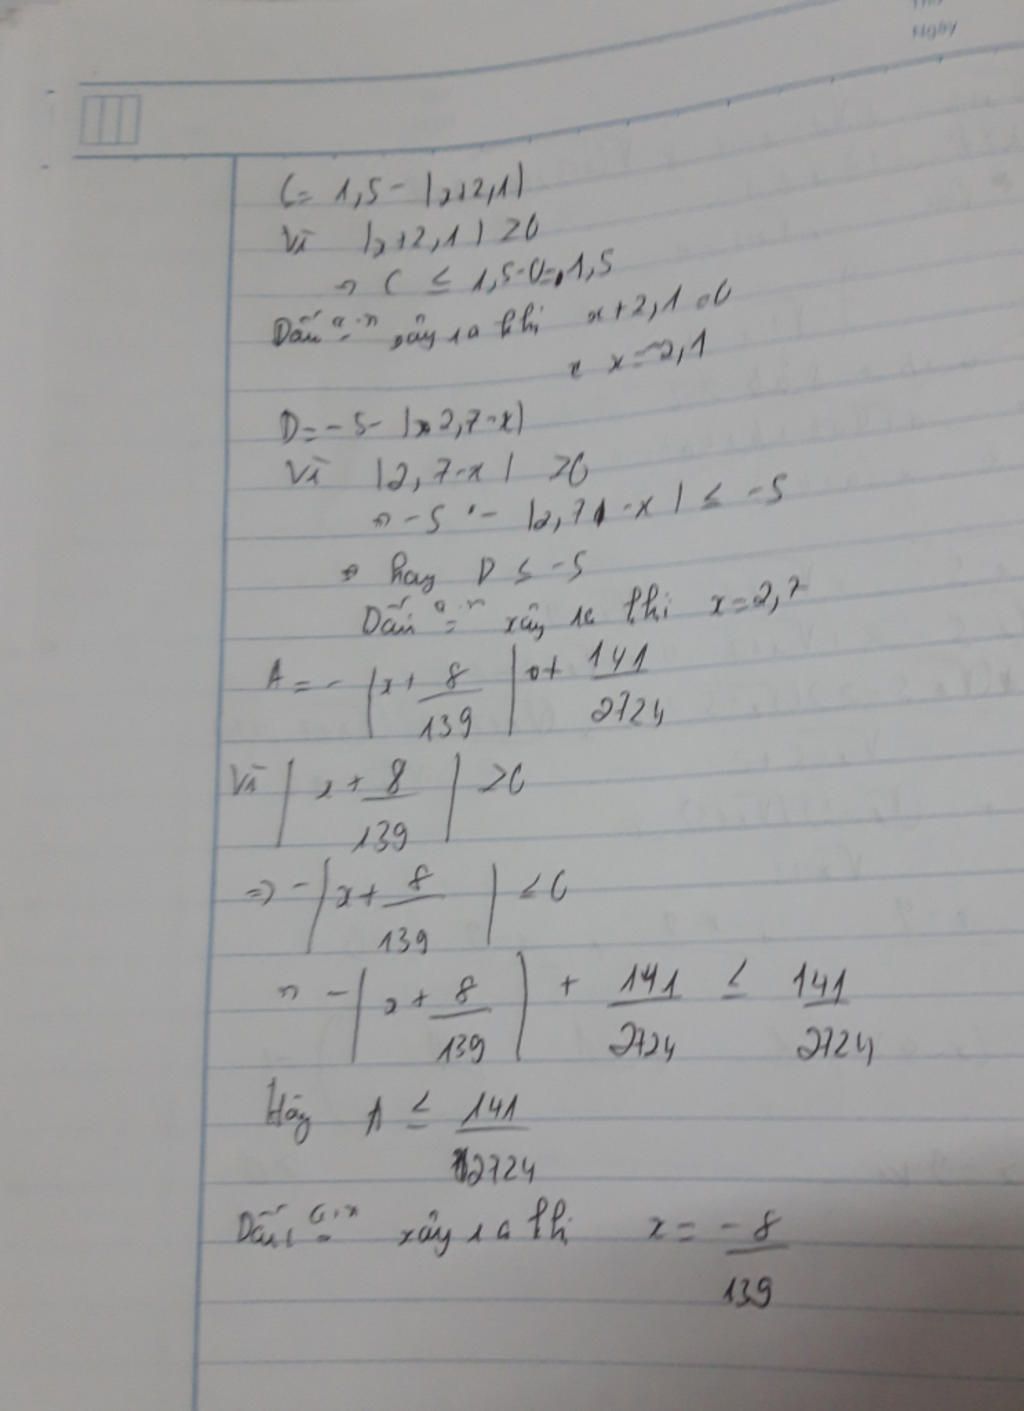 Ngày
C = 1,5 - |x+2,1|
Vì |x+2,1| ≥ 0
=> C ≤ 1,5-0=1,5
Dấu "=" xảy ra khi x+2,1=0
x=-2,1
D = -5- |2,7-x|
Vì |2,7-x| ≥0
=> -5 - |2,7-x| ≤ -5
hay D ≤ -5
Dấu "=" xảy ra khi x=2,7
A = - |x + 8/139| + 141/2724
Vì |x + 8/139| ≥0
=> - |x + 8/139| ≤ 0
=> - |x + 8/139| + 141/2724 ≤ 141/2724
Hay A ≤ 141/2724
Dấu "=" xảy ra khi x = -8/139